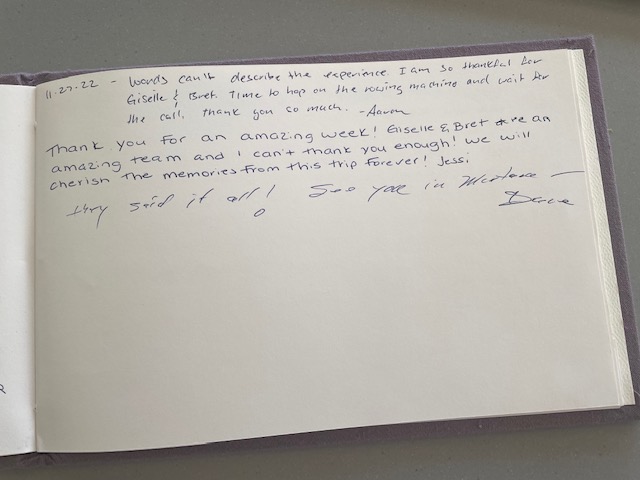 11.27.22 - Words can't describe the experience I am so thankful for
Giselle & Bret. Time to hop on the rowing machine and wait for
the call. Thank you so much. -Aaron
Thank you for an amazing week! Giselle & Bret are an
amazing team and I can't thank you enough! We will
cherish the memories from this trip forever! Jessi
They said it all! See you in